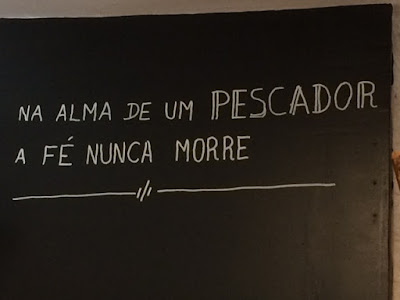 NA ALMA DE UM PESCADOR
A FÉ NUNCA MORRE